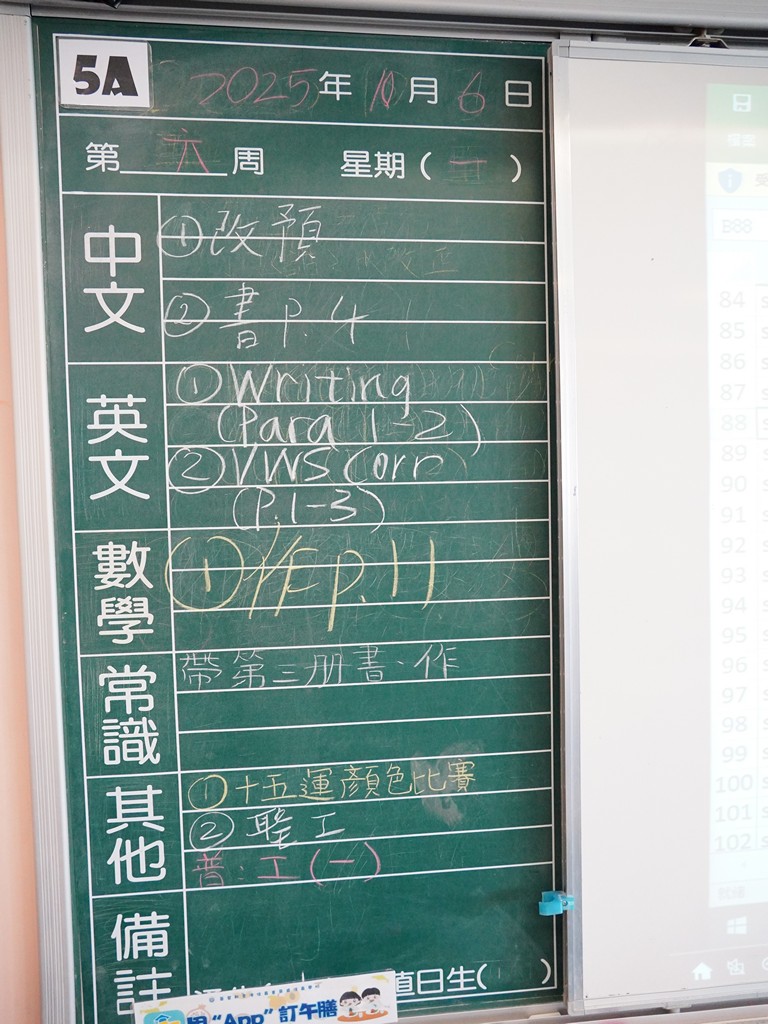 5A
2025年10月6日
第六周 星期(一)
中文
①改預
②書P.4
英文
①Writing
(Para 1-2)
②VWS Corr
(P.1-3)
數學
①作P.11
常識
帶第三冊書、作
其他
①十五運顏色比賽
②聖工
普:工(一)
備註
值日生( )
"App"訂午膳
B88
84
85
86
87
88
89
90
91
92
93
94
95
96
97
98
99
100
101
102